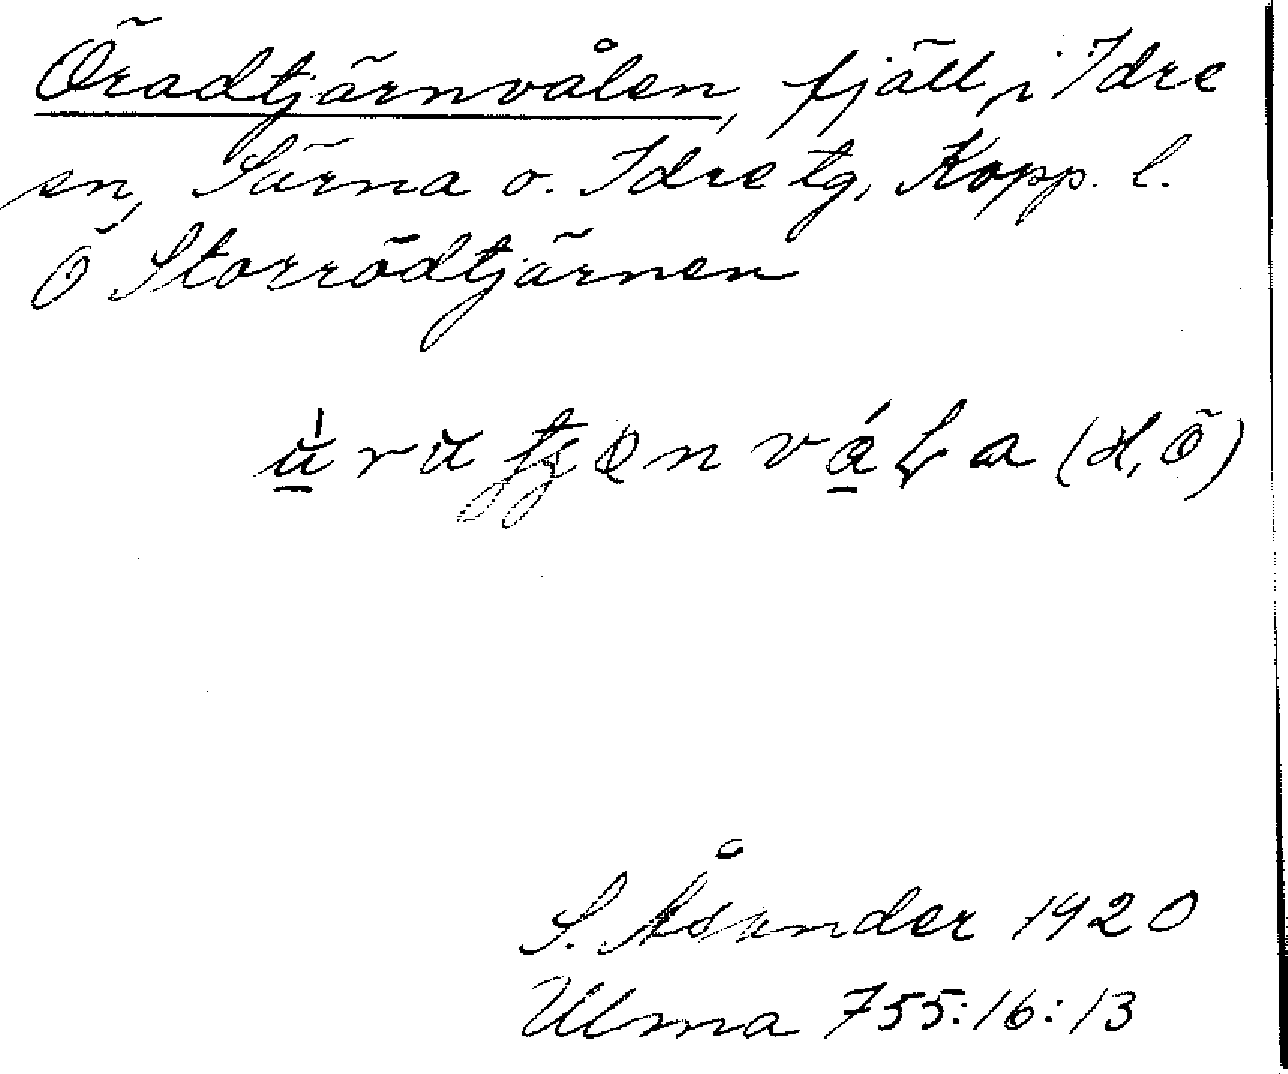 Öradtjärnvålen, fjäll, i Idre
sn, Särna o. Idre tg, Kopp. l.
Ö Storrödtjärnen
(H, Ö)
S. Åsander 1920
Ulma 755:16:13